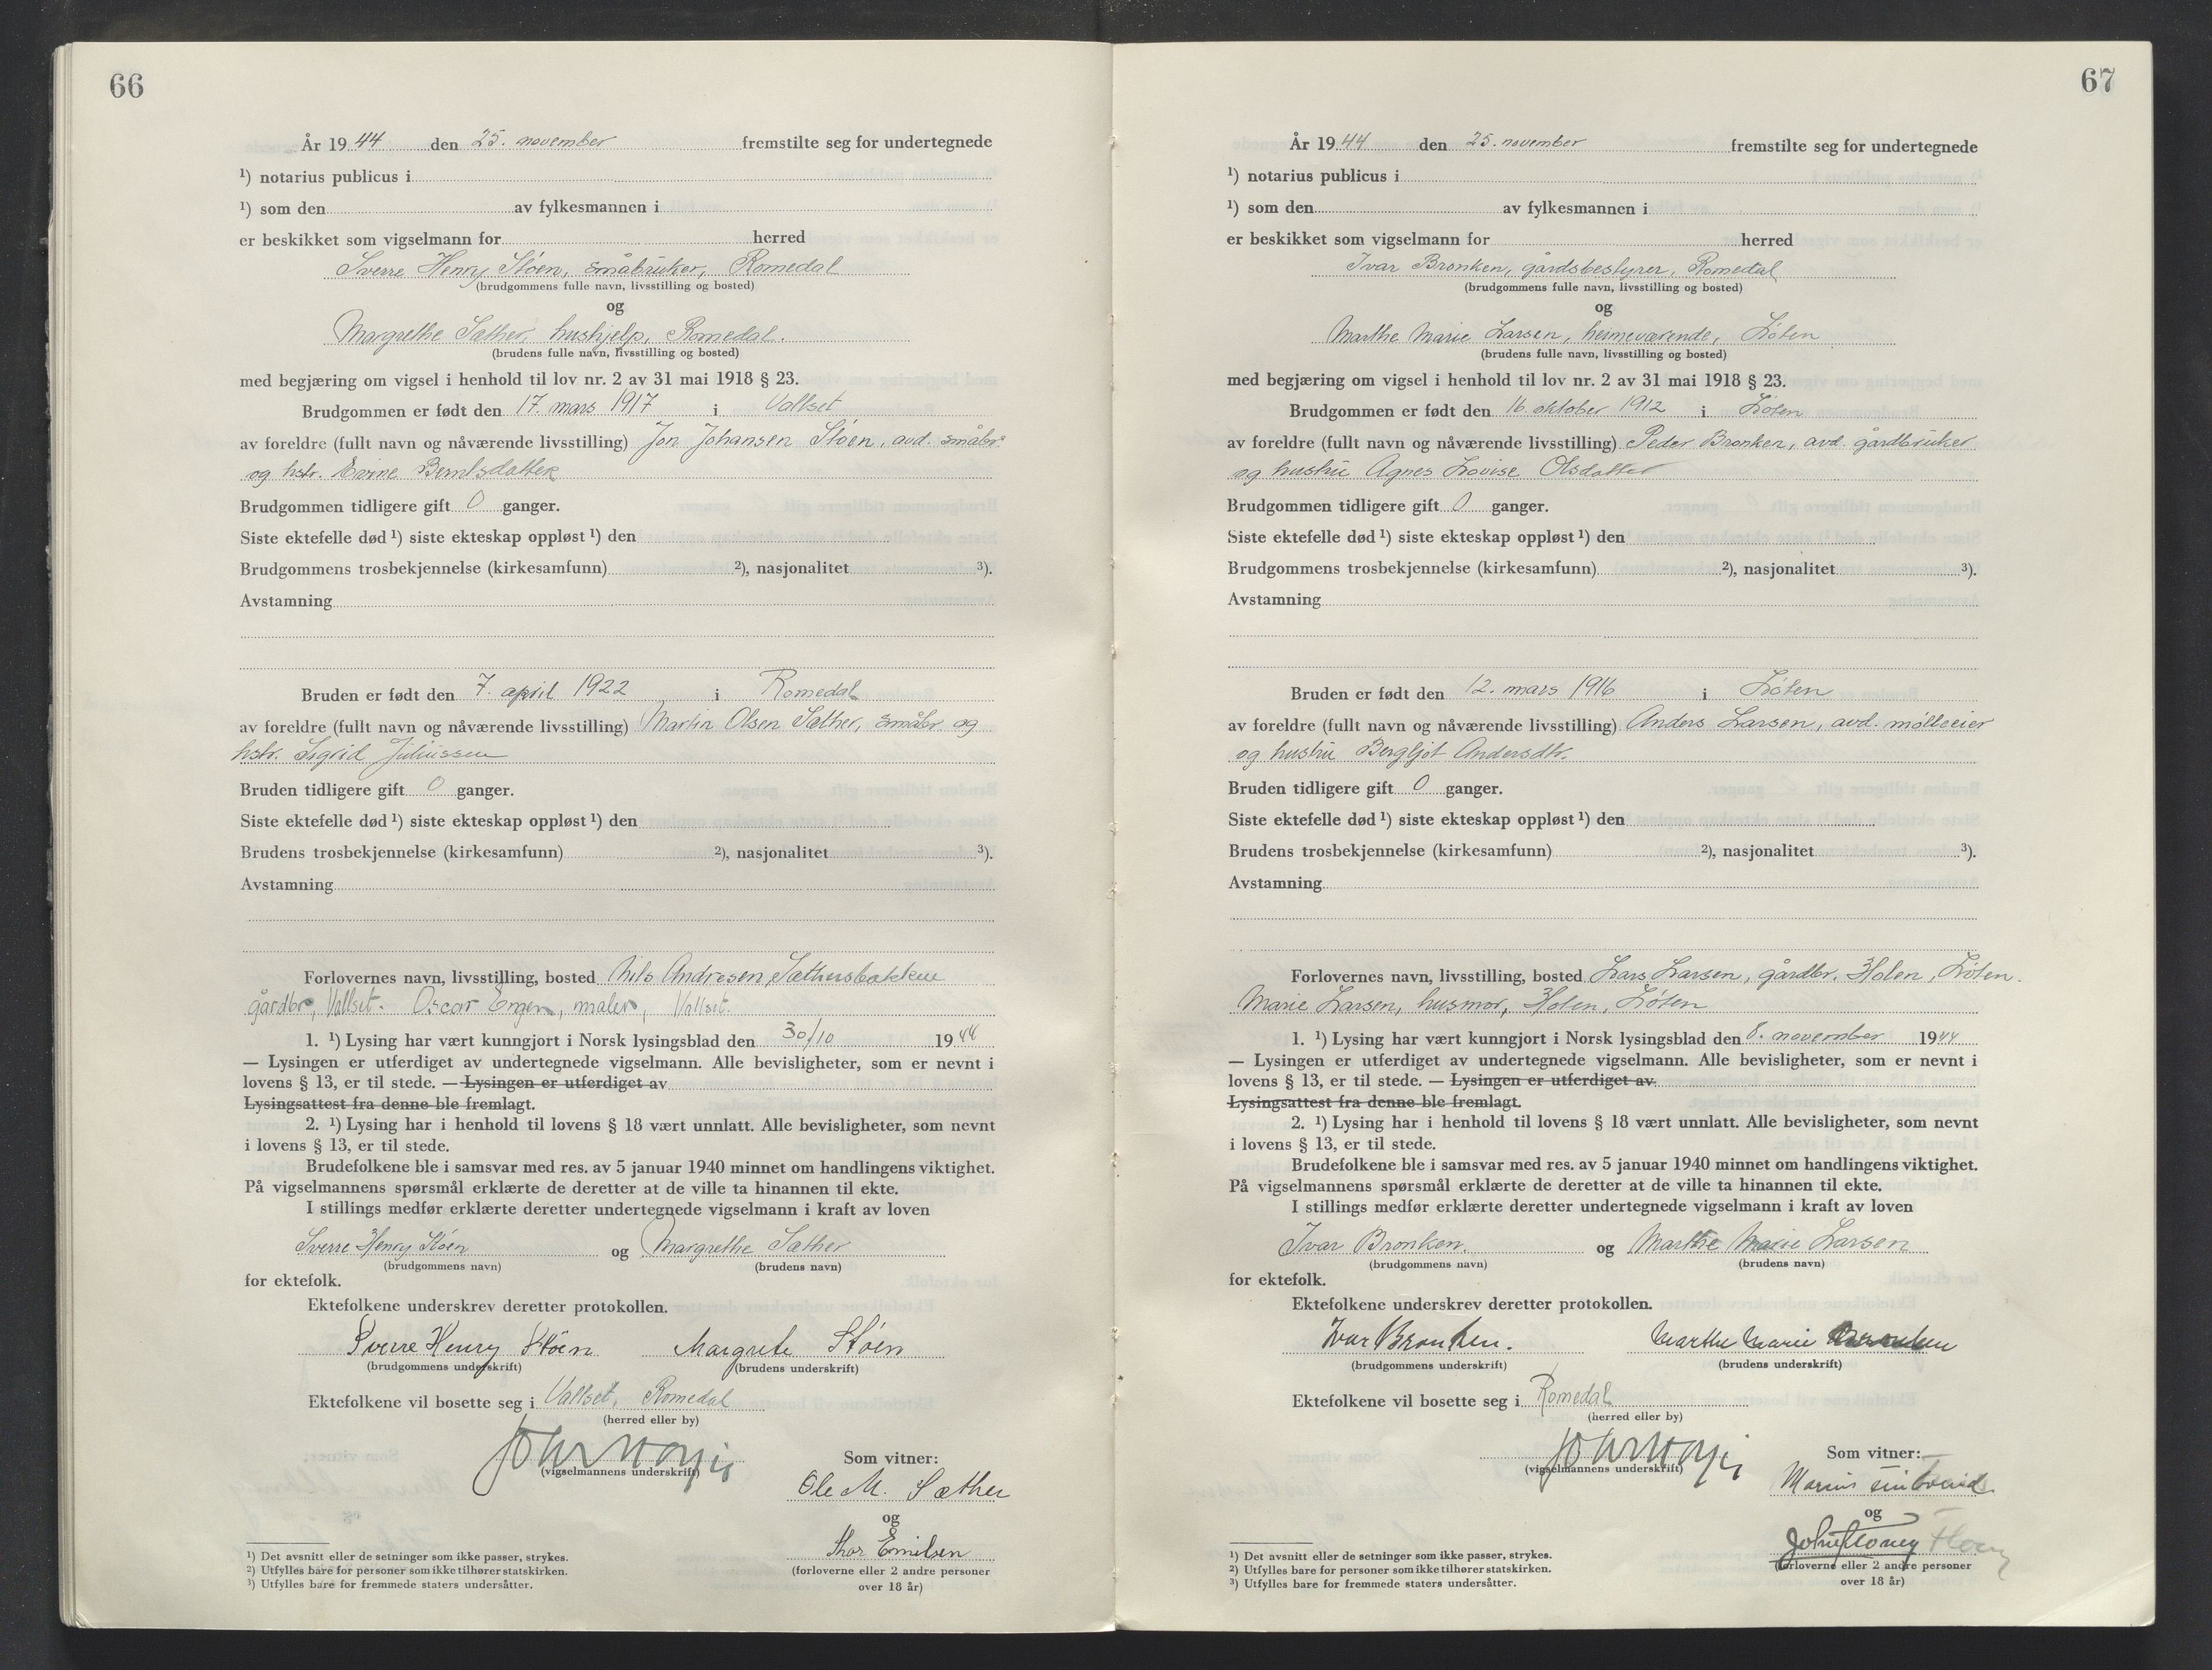 66
År 1944 den 25. november fremstilte seg for undertegnede
1) notarius publicus i
1) som den av fylkesmannen i
er beskikket som vigselmann for herred
Sverre Henry Støen, småbruker, Romedal
(brudgommens fulle navn, livsstilling og bosted)
og
Margrethe Sæther, hushjelp, Romedal.
(brudens fulle navn, livsstilling og bosted)
med begjæring om vigsel i henhold til lov nr. 2 av 31 mai 1918 § 23.
Brudgommen er født den 17. mars 1917 i Vallset
av foreldre (fullt navn og nåværende livsstilling) Jon Johansen Støen, avd. småbr.
og hstr. Evine Berntsdatter
Brudgommen tidligere gift 0 ganger.
Siste ektefelle død 1) siste ekteskap oppløst 1) den
Brudgommens trosbekjennelse (kirkesamfunn) 2), nasjonalitet 3).
Avstamning
Bruden er født den 7. april 1922 i Romedal
av foreldre (fullt navn og nåværende livsstilling) Martin Olsen Sæther, småbr. og
hstr. Sigrid Juliussen
Bruden tidligere gift 0 ganger.
Siste ektefelle død 1) siste ekteskap oppløst 1) den
Brudens trosbekjennelse (kirkesamfunn) 2), nasjonalitet 3).
Avstamning
Forlovernes navn, livsstilling, bosted Nils Andresen Sæthersbakken
gårdbr, Vallset. Oscar Engen, maler, Vallset.
1. 1) Lysing har vært kunngjort i Norsk lysingsblad den 30/10 1944
— Lysingen er utferdiget av undertegnede vigselmann. Alle bevisligheter, som er nevnt i
lovens § 13, er til stede. — Lysingen er utferdiget av
Lysingsattest fra denne ble fremlagt.
2. 1) Lysing har i henhold til lovens § 18 vært unnlatt. Alle bevisligheter, som nevnt
i lovens § 13, er til stede.
Brudefolkene ble i samsvar med res. av 5 januar 1940 minnet om handlingens viktighet.
På vigselmannens spørsmål erklærte de deretter at de ville ta hinannen til ekte.
I stillings medfør erklærte deretter undertegnede vigselmann i kraft av loven
Sverre Henry Støen og Margrethe Sæther
(brudgommens navn) (brudens navn)
for ektefolk.
Ektefolkene underskrev deretter protokollen.
Sverre Henry Støen Margrete Støen
(brudgommens underskrift) (brudens underskrift)
Ektefolkene vil bosette seg i Vallset, Romedal
(herred eller by)
(vigselmannens underskrift)
Som vitner:
Ole M. Sæther
og
Thor Emilsen
(forloverne eller 2 andre personer
over 18 år)
1) Det avsnitt eller de setninger som ikke passer, strykes.
2) Utfylles bare for personer som ikke tilhører statskirken.
3) Utfylles bare for fremmede staters undersåtter.
67
År 1944 den 25. november fremstilte seg for undertegnede
1) notarius publicus i
1) som den av fylkesmannen i
er beskikket som vigselmann for herred
Ivar Bronken, gårdsbestyrer, Romedal
(brudgommens fulle navn, livsstilling og bosted)
og
Marthe Marie Larsen, heimeværende, Løten
(brudens fulle navn, livsstilling og bosted)
med begjæring om vigsel i henhold til lov nr. 2 av 31 mai 1918 § 23.
Brudgommen er født den 16. oktober 1912 i Løten
av foreldre (fullt navn og nåværende livsstilling) Peder Bronken, avd. gårdbruker
og hustru Agnes Lovise Olsdatter
Brudgommen tidligere gift 0 ganger.
Siste ektefelle død 1) siste ekteskap oppløst 1) den
Brudgommens trosbekjennelse (kirkesamfunn) 2), nasjonalitet 3).
Avstamning
Bruden er født den 12. mars 1916 i Løten
av foreldre (fullt navn og nåværende livsstilling) Anders Larsen, avd. mølleeier
og hustru Bergljot Andersdtr.
Bruden tidligere gift 0 ganger.
Siste ektefelle død 1) siste ekteskap oppløst 1) den
Brudens trosbekjennelse (kirkesamfunn) 2), nasjonalitet 3).
Avstamning
Forlovernes navn, livsstilling, bosted Lars Larsen, gårdbr. Holen, Løten.
Marie Larsen, husmor, Holen, Løten
1. 1) Lysing har vært kunngjort i Norsk lysingsblad den 8. november 1944
— Lysingen er utferdiget av undertegnede vigselmann. Alle bevisligheter, som er nevnt i
lovens § 13, er til stede. — Lysingen er utferdiget av
Lysingsattest fra denne ble fremlagt.
2. 1) Lysing har i henhold til lovens § 18 vært unnlatt. Alle bevisligheter, som nevnt
i lovens § 13, er til stede.
Brudefolkene ble i samsvar med res. av 5 januar 1940 minnet om handlingens viktighet.
På vigselmannens spørsmål erklærte de deretter at de ville ta hinannen til ekte.
I stillings medfør erklærte deretter undertegnede vigselmann i kraft av loven
Ivar Bronken. og Marthe Marie Larsen
(brudgommens navn) (brudens navn)
for ektefolk.
Ektefolkene underskrev deretter protokollen.
Ivar Bronken. Marthe Marie Bronken
(brudgommens underskrift) (brudens underskrift)
Ektefolkene vil bosette seg i Romedal
(herred eller by)
(vigselmannens underskrift)
Som vitner:
Marius
og
(forloverne eller 2 andre personer
over 18 år)
1) Det avsnitt eller de setninger som ikke passer, strykes.
2) Utfylles bare for personer som ikke tilhører statskirken.
3) Utfylles bare for fremmede staters undersåtter.